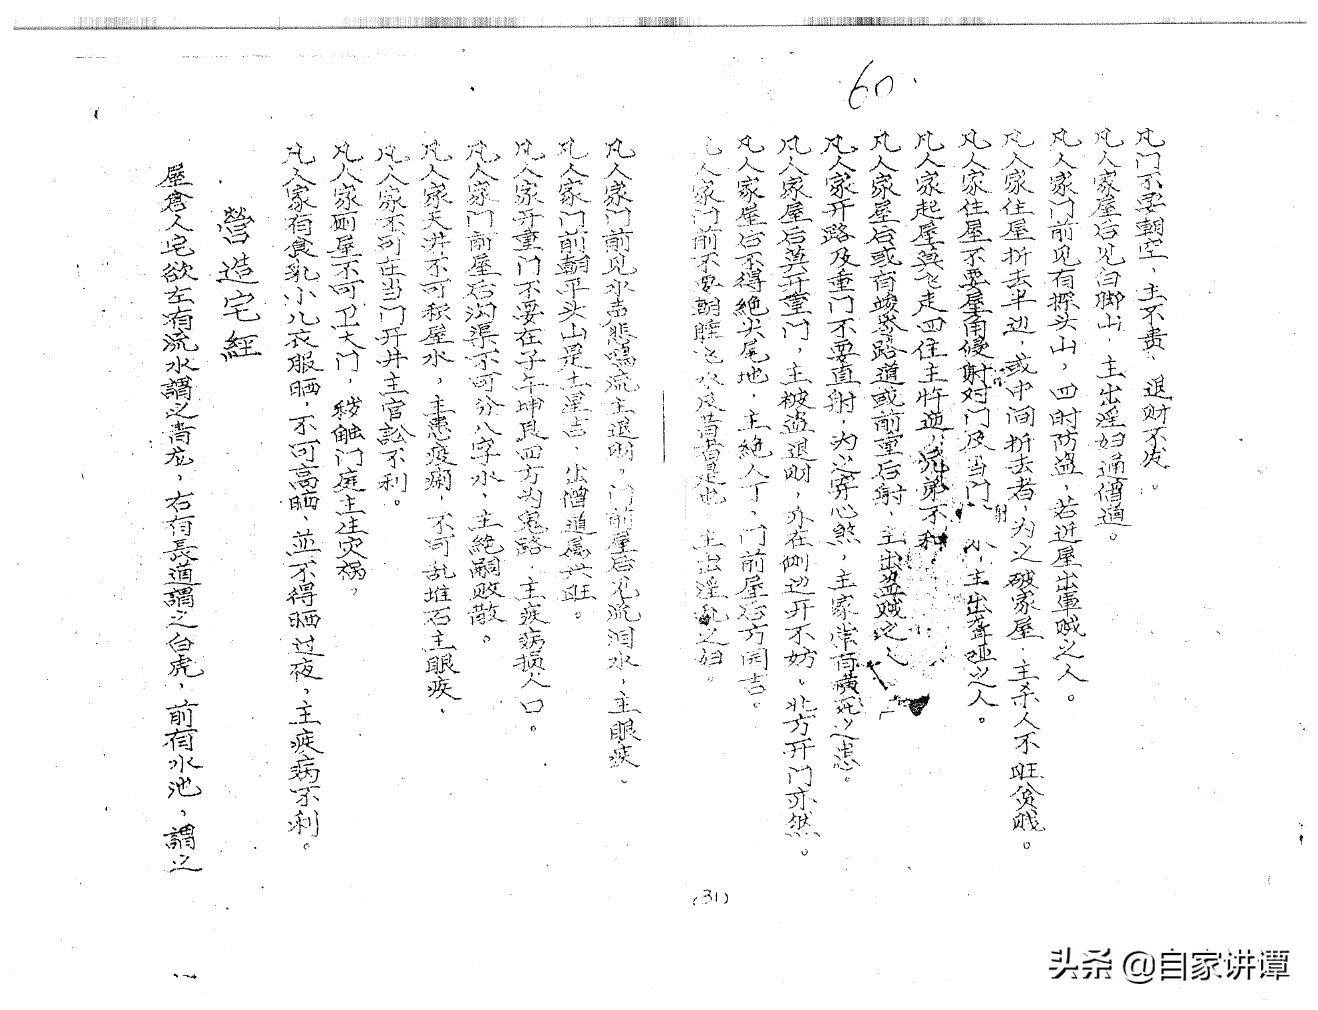 60
凡门不要朝空，主不贵，退财不发。
凡人家屋后见白脚山，主出淫妇通僧道。
凡人家门前见有探头山，四时防盗，若近屋出軍贼之人。
凡人家住屋折去半边，或中间折去者，为之破家屋，主杀人不旺贫贱。
凡人家住屋不要屋角侵射对门及当门 射 小，主出聋哑之人。
凡人家起屋莫飞走四住主忤逆，兄弟不和
凡人家屋后或有 路道或前重后射，主出盗贼之
凡人家开路及重门不要直射，为之穿心煞，主家常有横死之患。
凡人家屋后莫开重门，主被盗退明，亦在侧边开不妨。北方开门亦然。
凡人家屋后不得绝尖尾地，主絶人丁，门前屋后方闲吉。
人家门前不要朝 水 是也 主出淫乱之妇。
(31)
凡人家门前见水声悲鳴流主退明，门前屋后见流泪水，主眼疾。
凡人家门前朝平头山是土星吉，出僧道属兴旺。
凡人家开重门不要在子午坤艮四方为鬼路，主疾病损人口。
凡人家门前屋后沟渠不可分八字水，主絶嗣败散。
凡人家天井不可积屋水，主患疫痢，不可乱堆石主眼疾，
凡人家不可在当门开井主官訟不利。
凡人家厕屋不可卫大门，秽触门庭主生灾祸，
凡人家有食乳小儿衣服晒，不可高晒，並不得晒过夜，主疾病不利。
營造宅經
屋舍人宅欲左有流水謂之青龙，右有長道謂之白虎，前有水池，謂之
头条 @自家讲谭